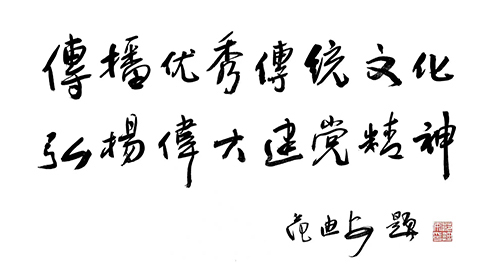 傳播优秀傳统文化
弘揚偉大建党精神
范迪安 题